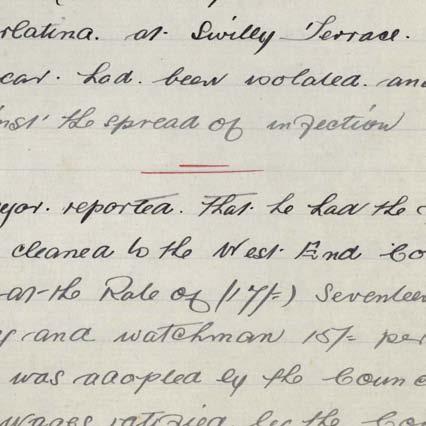 rlatina. at Swilly Terrace.
had been isolated. and
the spread of infection
reported. That he had the
cleaned to the West End Co
at the Rate of (17/=) Seventeen
and watchman 15/- per
was adopled by the Counc
wages ratified by the Co